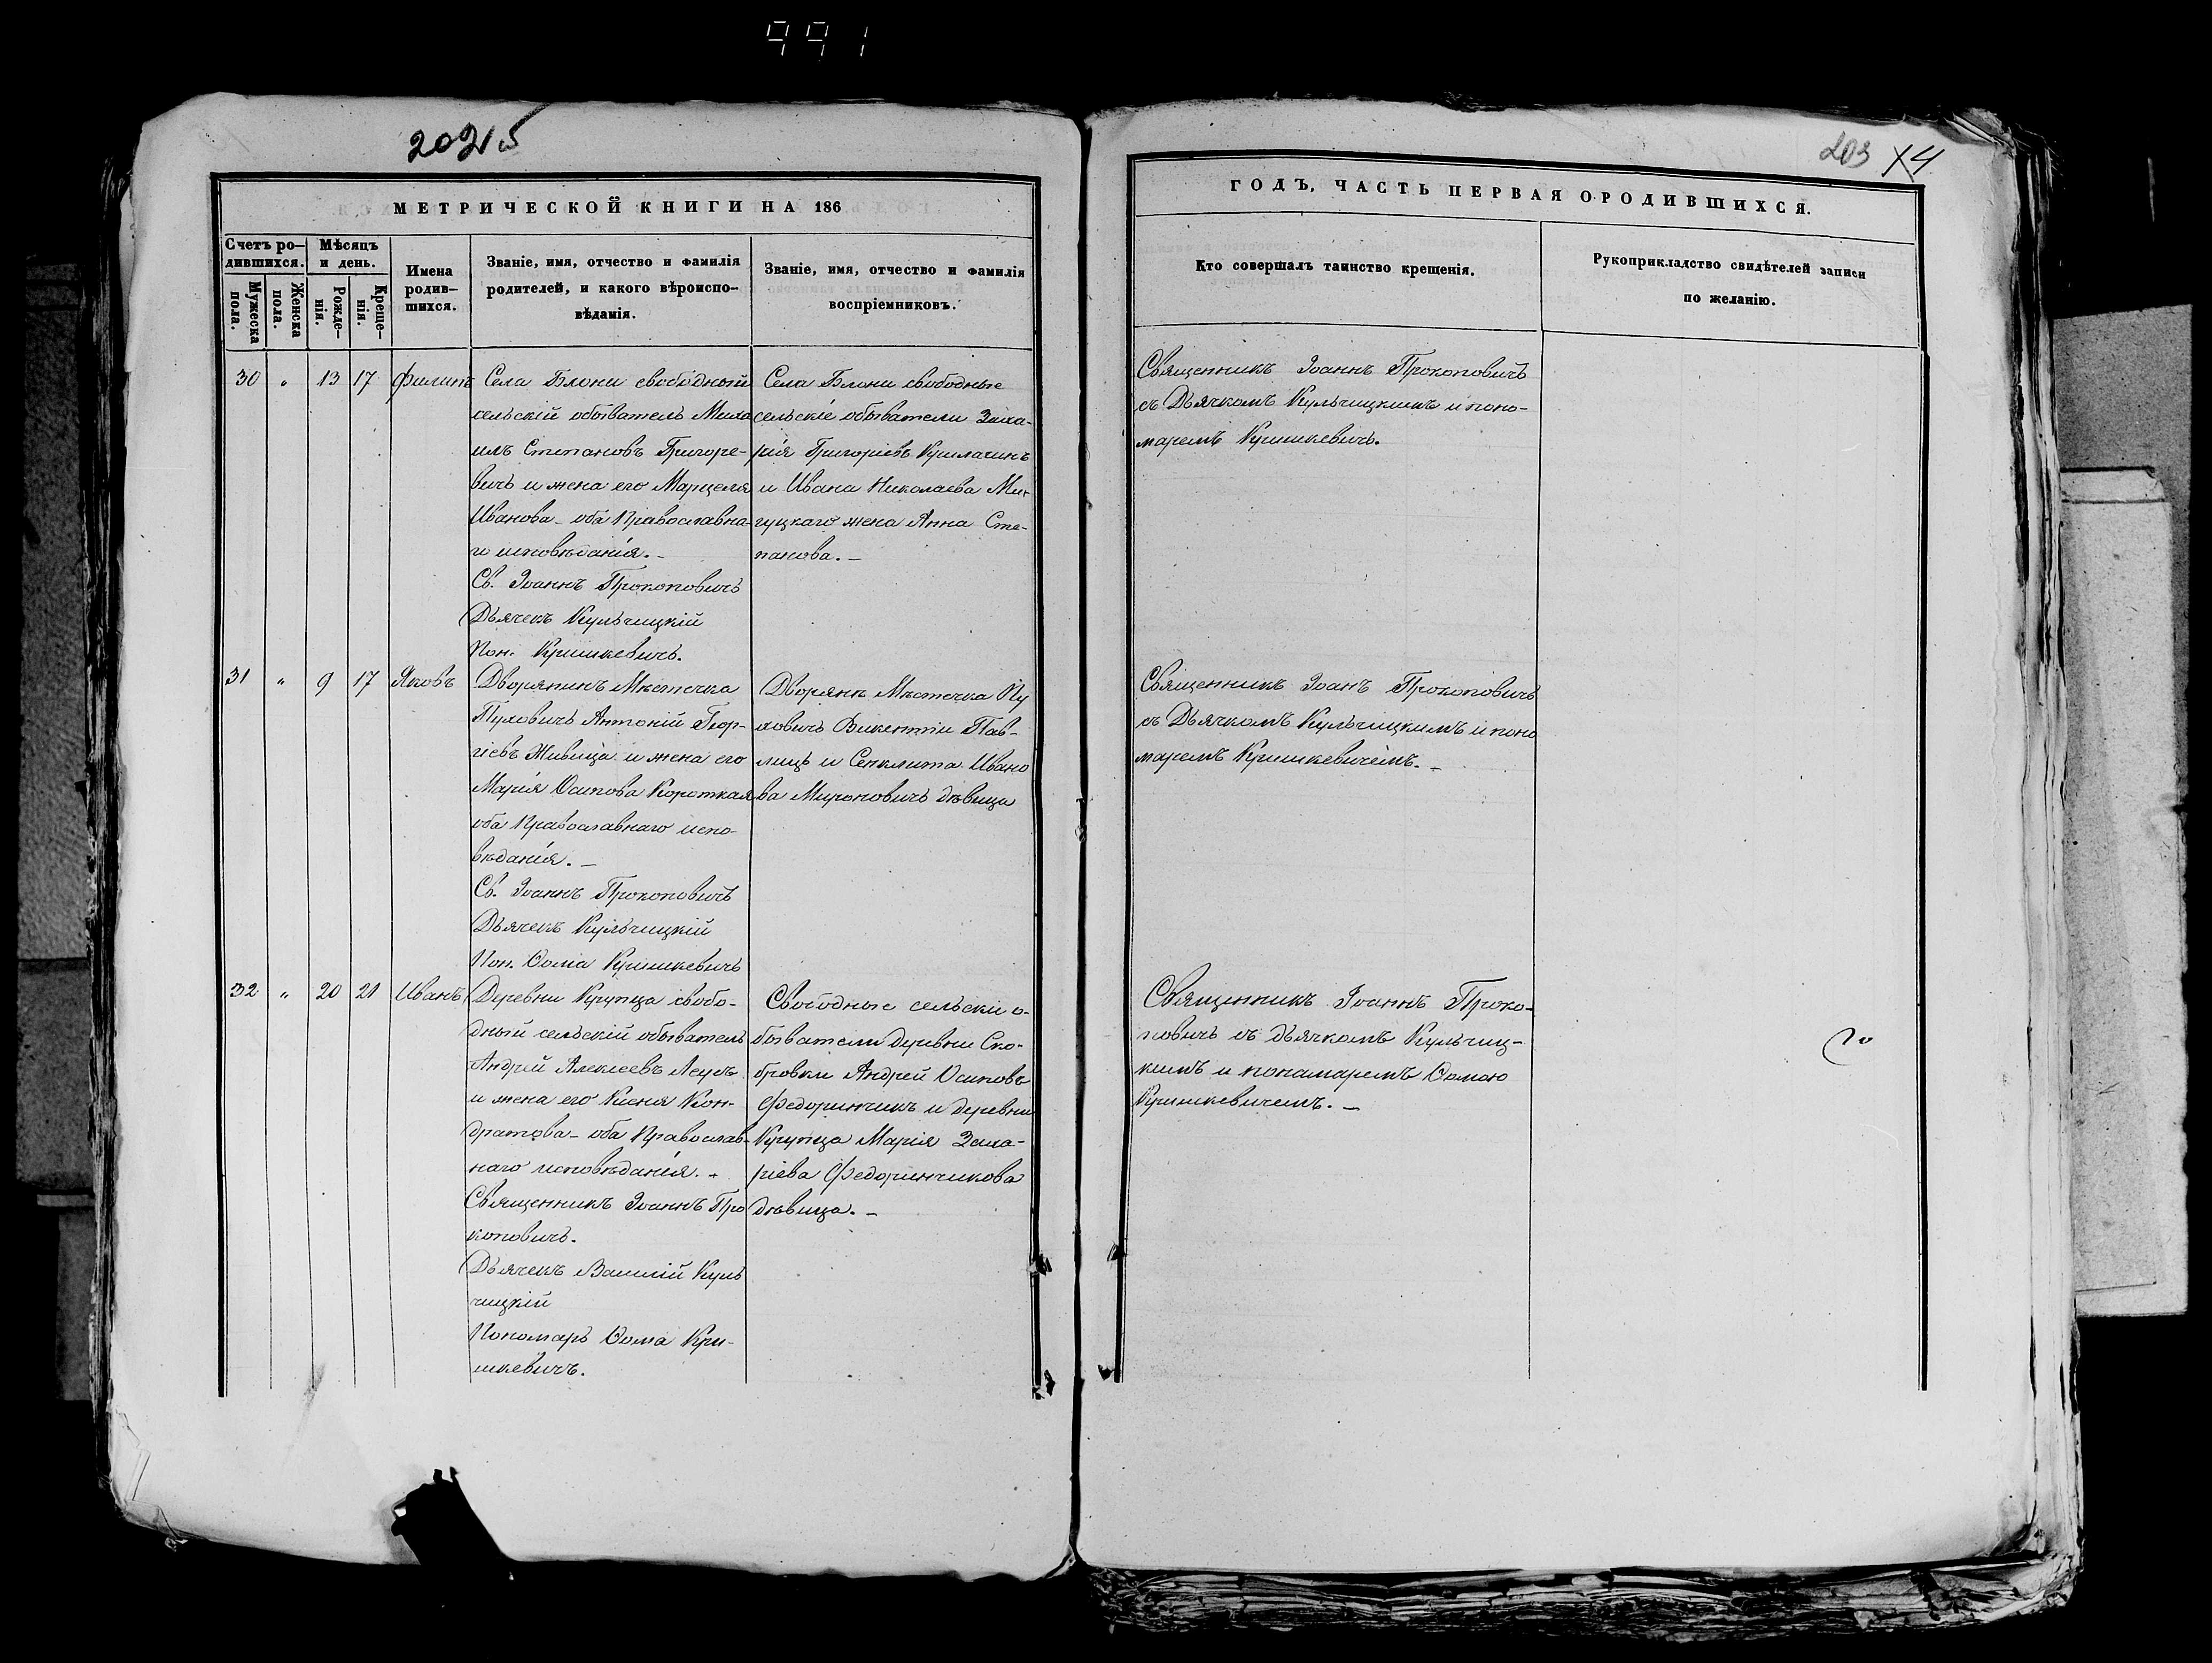 991
203
МЕТРИЧЕСКОЙ КНИГИ НА 186
Счетъ ро-
дившихся.
Мужеска
пола.
Женска
пола.
Мѣсяцъ
и день.
Рожде-
нія.
Креще-
нія.
Имена
родив-
шихся.
Званіе, имя, отчество и фамилія
родителей, и какого вѣроиспо-
вѣданія.
Званіе, имя, отчество и фамилія
воспріемниковъ.
30 " 13 17 Филипъ
Села Блони свободный
сельскій обыватель Миха
илъ Степановъ Григоре-
вичъ и жена его Марцеля
Иванова - оба Православна-
го исповѣданія. -
Св. Іоаннъ Прокоповичъ
Дьячекъ Кульчицкій
Пон. Кришкевичъ.
Села Блони свободные
сельскіе обыватели Заха-
рія Григоріевъ
и Ивана Николаева Ми-
гуцкаго жена Анна Сте-
панова. -
31 " 9 17 Яковъ
Дворянинъ Мѣстечка
Пуховичъ Антоній Геор-
гіевъ Живица и жена его
Марія Осипова Короткая
оба Православнаго испо-
вѣданія. -
Св. Іоаннъ Прокоповичъ
Дьячекъ Кульчицкій
Пон. Ѳома Кришкевичъ
Дворяне Мѣстечка Пу
ховичъ Викентіи Пав-
лицъ и Сенклита Ивано
ва Мироновичъ дѣвица
32 " 20 21 Иванъ
Деревни Крупца свобо-
дный сельскій обыватель
Андрей Алексеевъ
и жена его Ксеня Кон-
дратова - оба Православ-
наго исповѣданія. -
Священникъ Іоаннъ Про
коповичъ.
Дьячекъ Василій Куль
чицкій
Пономарь Ѳома Кри-
шкевичъ.
Свободные сельскіи о-
быватели деревни Ско-
бровки Андрей Осиповъ
Федоринчикъ и деревни
Крупца Марія Заха-
ріева Федоринчикова
дѣвица. -
ГОДЪ, ЧАСТЬ ПЕРВАЯ О РОДИВШИХСЯ.
Кто совершалъ таинство крещенія.
Рукоприкладство свидѣтелей записи
по желанію.
Священникъ Іоаннъ Прокоповичъ
съ Дьячкомъ Кульчицкимъ и поно-
маремъ Кришкевичъ.
Священникъ Іоанъ Прокоповичъ
съ Дьячкомъ Кульчицкимъ и поно
маремъ Кришкевичемъ. -
Священникъ Іоаннъ Проко-
повичъ съ дьячкомъ Кульчиц-
кимъ и понамаремъ Ѳомою
Кришкевичемъ. -